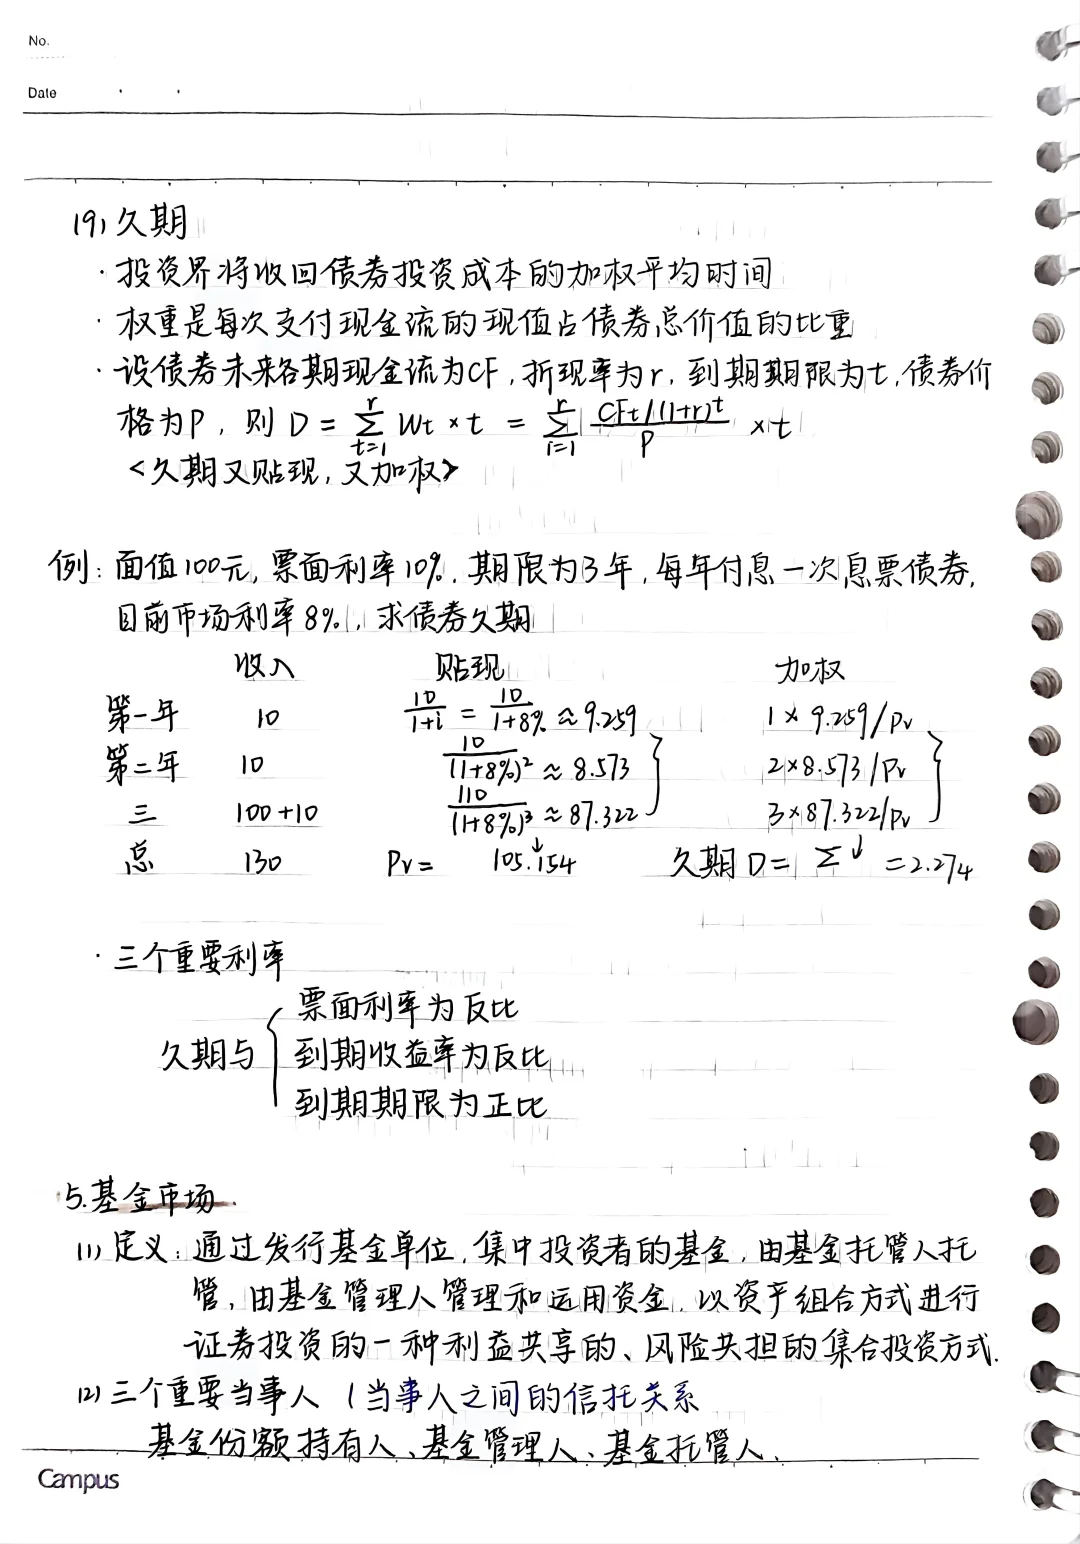 No.
Date
(9) 久期
· 投资界将收回债券投资成本的加权平均时间
· 权重是每次支付现金流的现值占债券总价值的比重
· 设债券未来各期现金流为CF,折现率为r,到期期限为t,债券价
格为P,则 D = Σ(t=1→r) Wt × t = Σ(i=1→r) CFt/(1+r)^t / P × t
<久期又贴现,又加权>
例:面值100元,票面利率10%,期限为3年,每年付息一次息票债券,
目前市场利率8%,求债券久期
收入 贴现 加权
第一年 10 10/(1+i) = 10/(1+8%) ≈ 9.259 1 × 9.259/Pv
第二年 10 10/(1+8%)² ≈ 8.573 2×8.573/Pv
三 100+10 110/(1+8%)³ ≈ 87.322 3×87.322/Pv
总 130 Pv = 105.154 久期 D = Σ↓ = 2.274
· 三个重要利率
票面利率为反比
久期与 { 到期收益率为反比
到期期限为正比
5.基金市场.
(1) 定义:通过发行基金单位,集中投资者的基金,由基金托管人托
管,由基金管理人管理和运用资金,以资产组合方式进行
证券投资的一种利益共享的、风险共担的集合投资方式.
(2) 三个重要当事人 (当事人之间的信托关系
基金份额持有人、基金管理人、基金托管人.
Campus